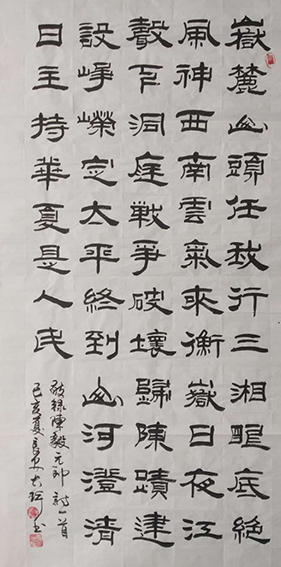 嶽麓山頭任我行三湘眼底絕
風神西南雲氣來衡嶽日夜江
聲下洞庭戰爭破壞歸陳蹟建
設崢嶸定太平終到山河澄清
日主持華夏是人民
敬録陳毅元帥詩一首
己亥夏